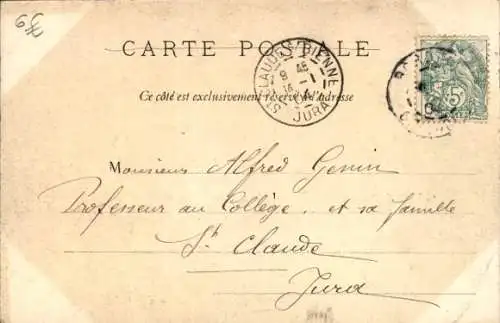 CARTE POSTALE
Ce côté est exclusivement réservé à l'adresse
ST CLAUDE-S-BIENNE
JURA
5
Monsieur Alfred Genin
Professeur au Collège, et sa famille
St Claude
Jura